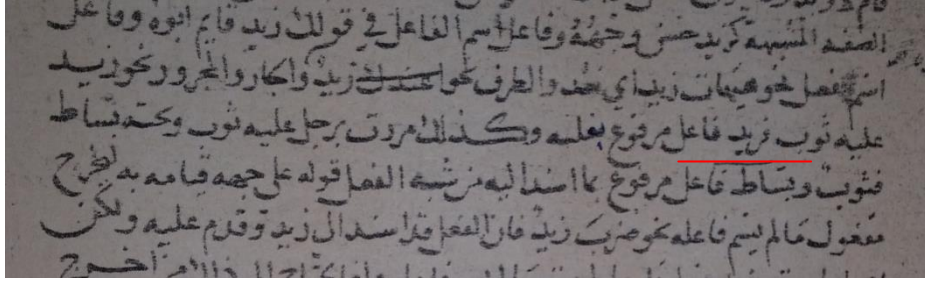 الصفه المشبهه كزيد حسن وجهه وفاعل اسم الفاعل في قولك زيد قايم ابوه وفاعل
اسم الفعل نحو هيهات زيد اي بعد والظرف نحو عندك زيد والجار والمجرور نحو زيد
عليه ثوب فزيد فاعل مرفوع بعليه وكذلك مررت برجل عليه ثوب وتحته بساط
فثوب وبساط فاعل مرفوع بما اسند اليه من شبه الفعل قوله على جهه قيامه به ليخرج
مفعول مالم يسم فاعله نحو ضرب زيد فان الفعل قد اسند الى زيد وقدم عليه ولكن